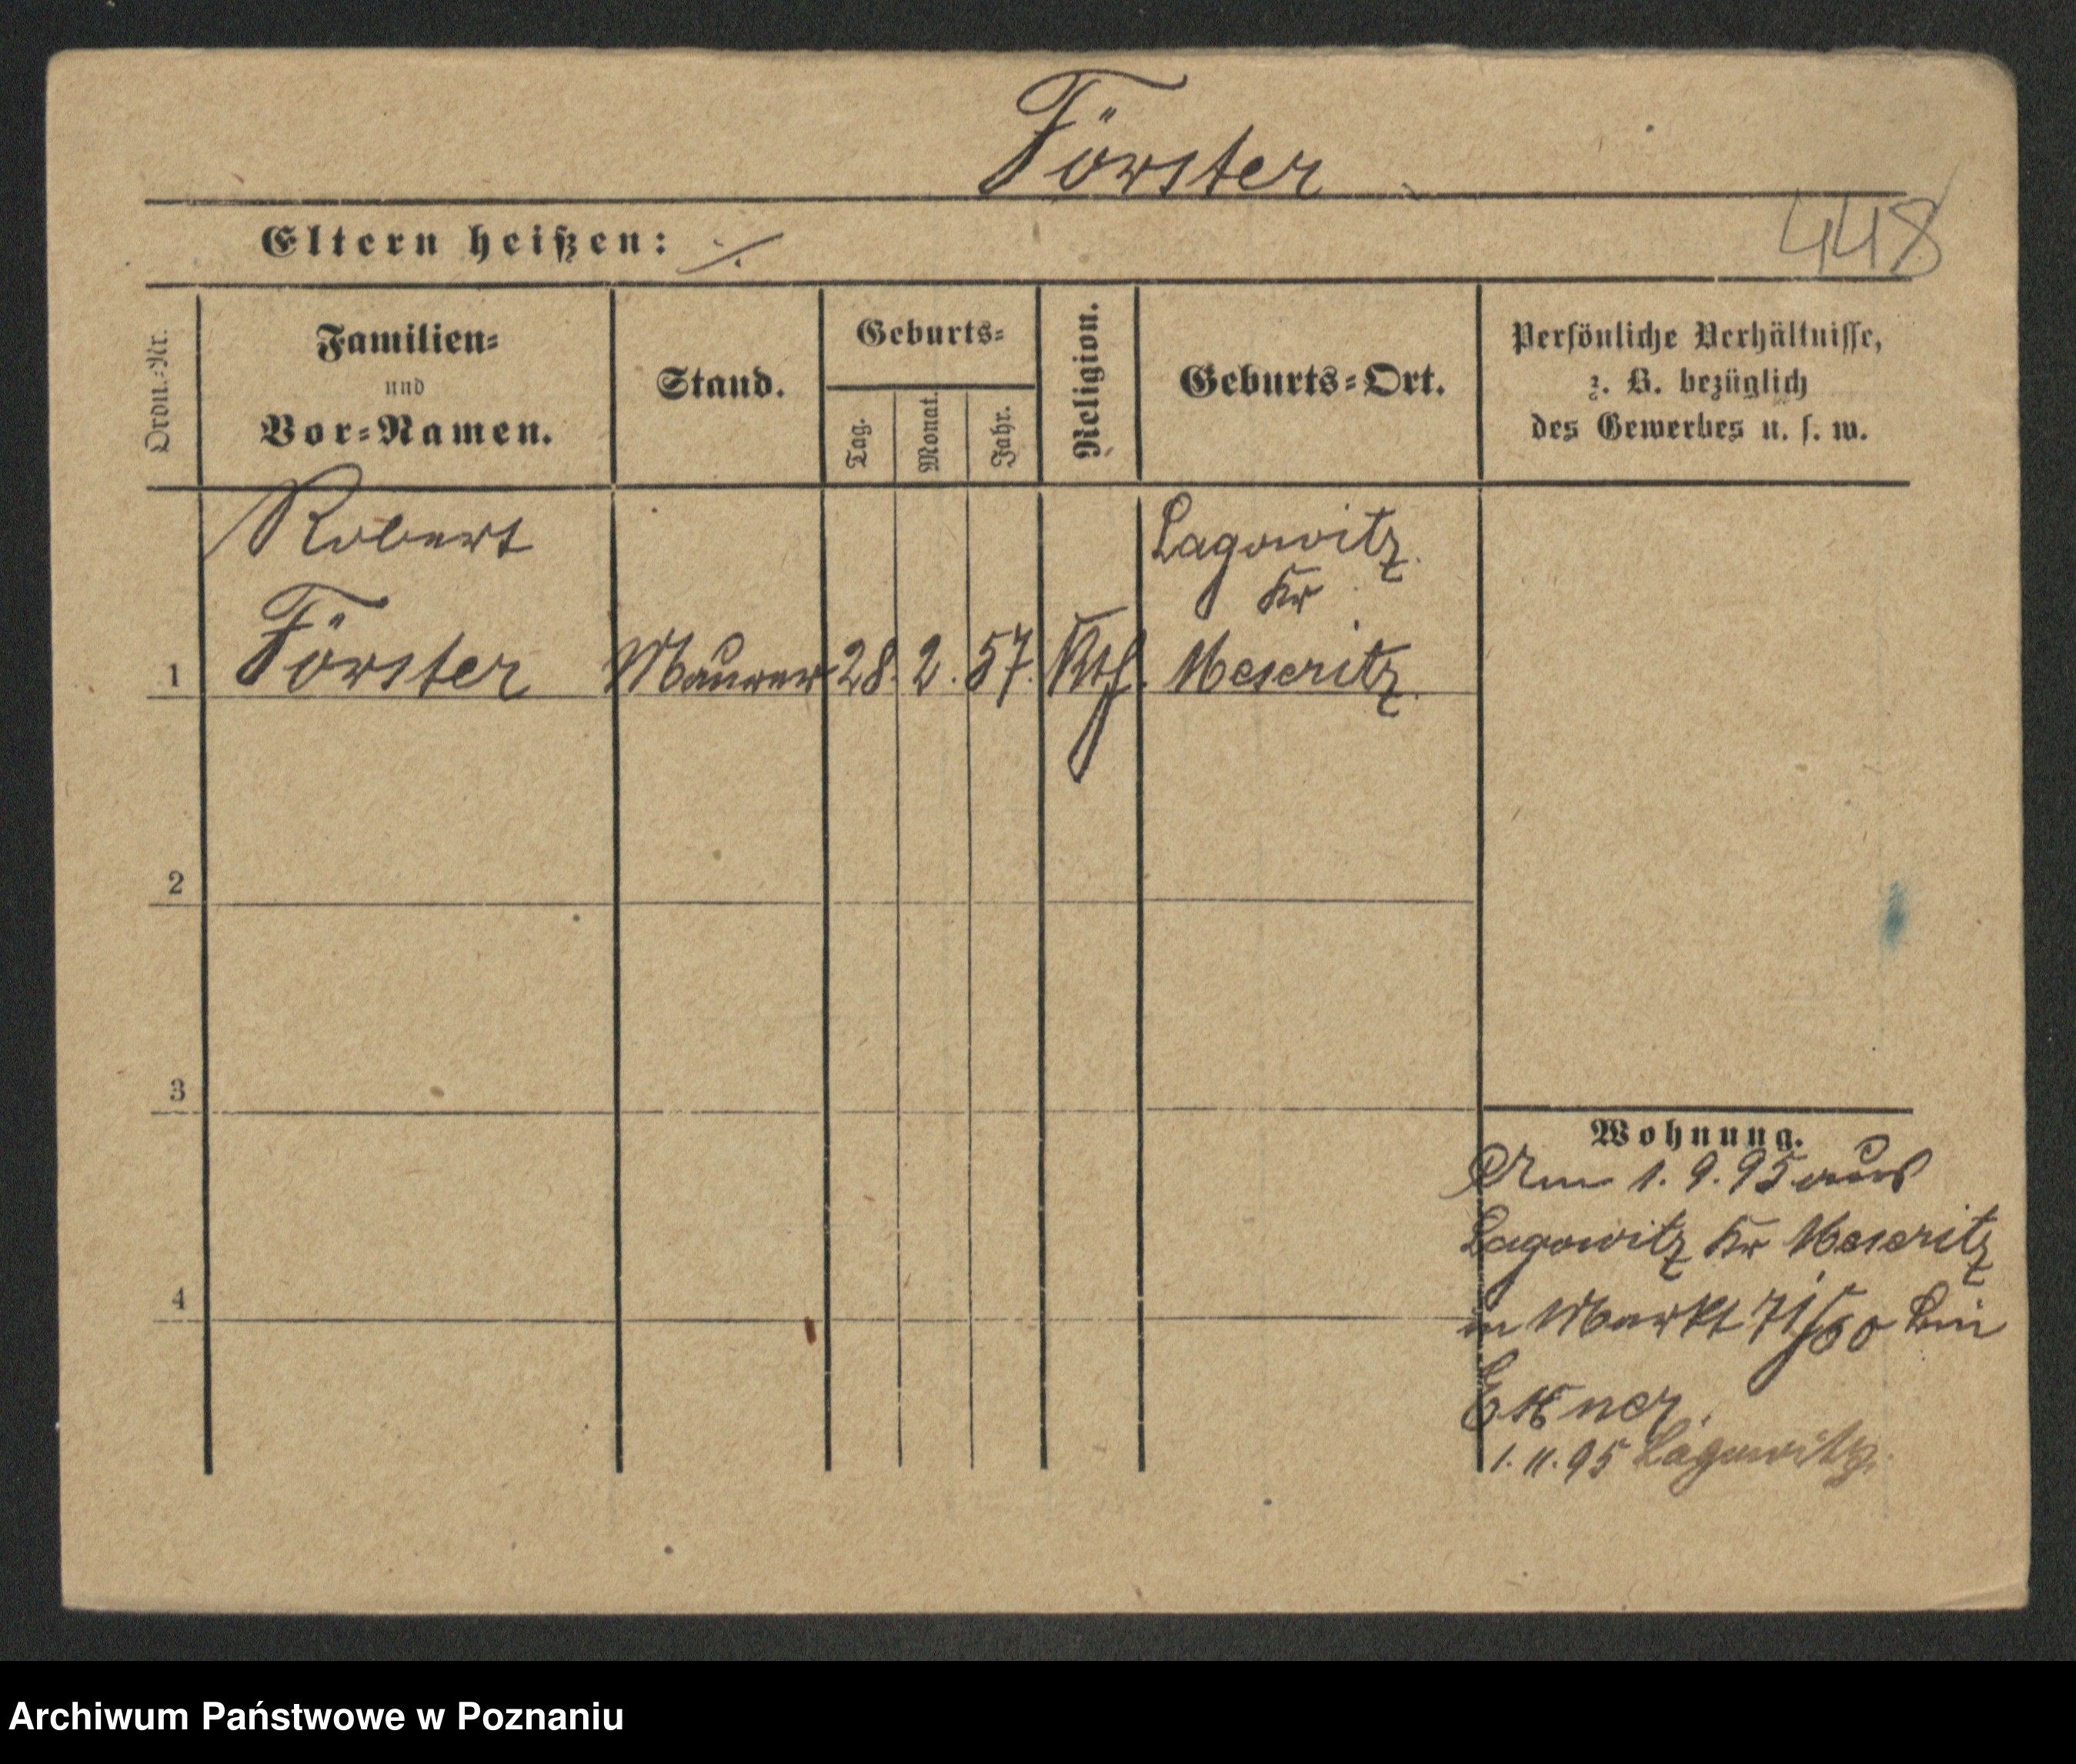 Förster
Eltern heißen: ⁒
448
Ordn.-Nr.
Familien-
und
Vor-Namen.
Stand.
Geburts-
Tag.
Monat.
Jahr.
Religion.
Geburts-Ort.
Persönliche Verhältnisse,
z. B. bezüglich
des Gewerbes u. s. w.
Robert
Förster
1
Maurer
28.
2.
57.
Kth.
Lagowitz
Kr
Meseritz
2
3
4
Wohnung.
Am 1. 9. 95 aus
Lagowitz Kr Meseritz
in Markt 71/ bei
1. 11. 95 Lagowitz.
Archiwum Państwowe w Poznaniu